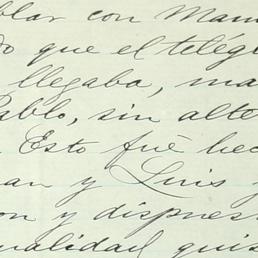 blar con Man
do que el telég
llegaba, ma
Pablo, sin alte
Esto fué hec
an y Luis y
on y dispues
ualidad quis